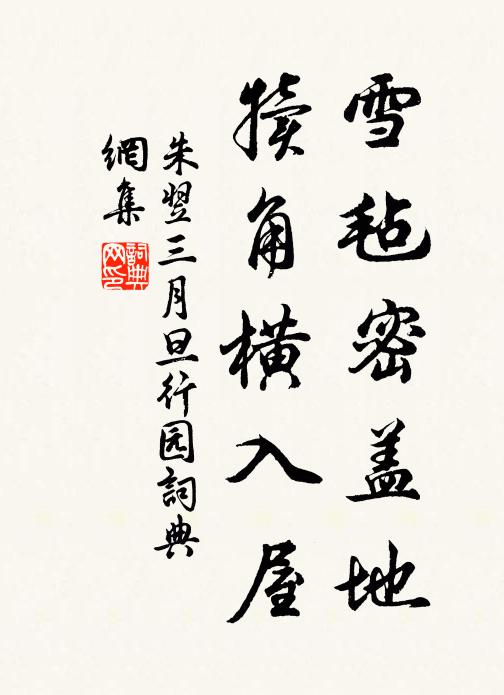 雪毡密盖地
犊角横入屋
朱翌三月旦行园詞典
網集
詞典网印